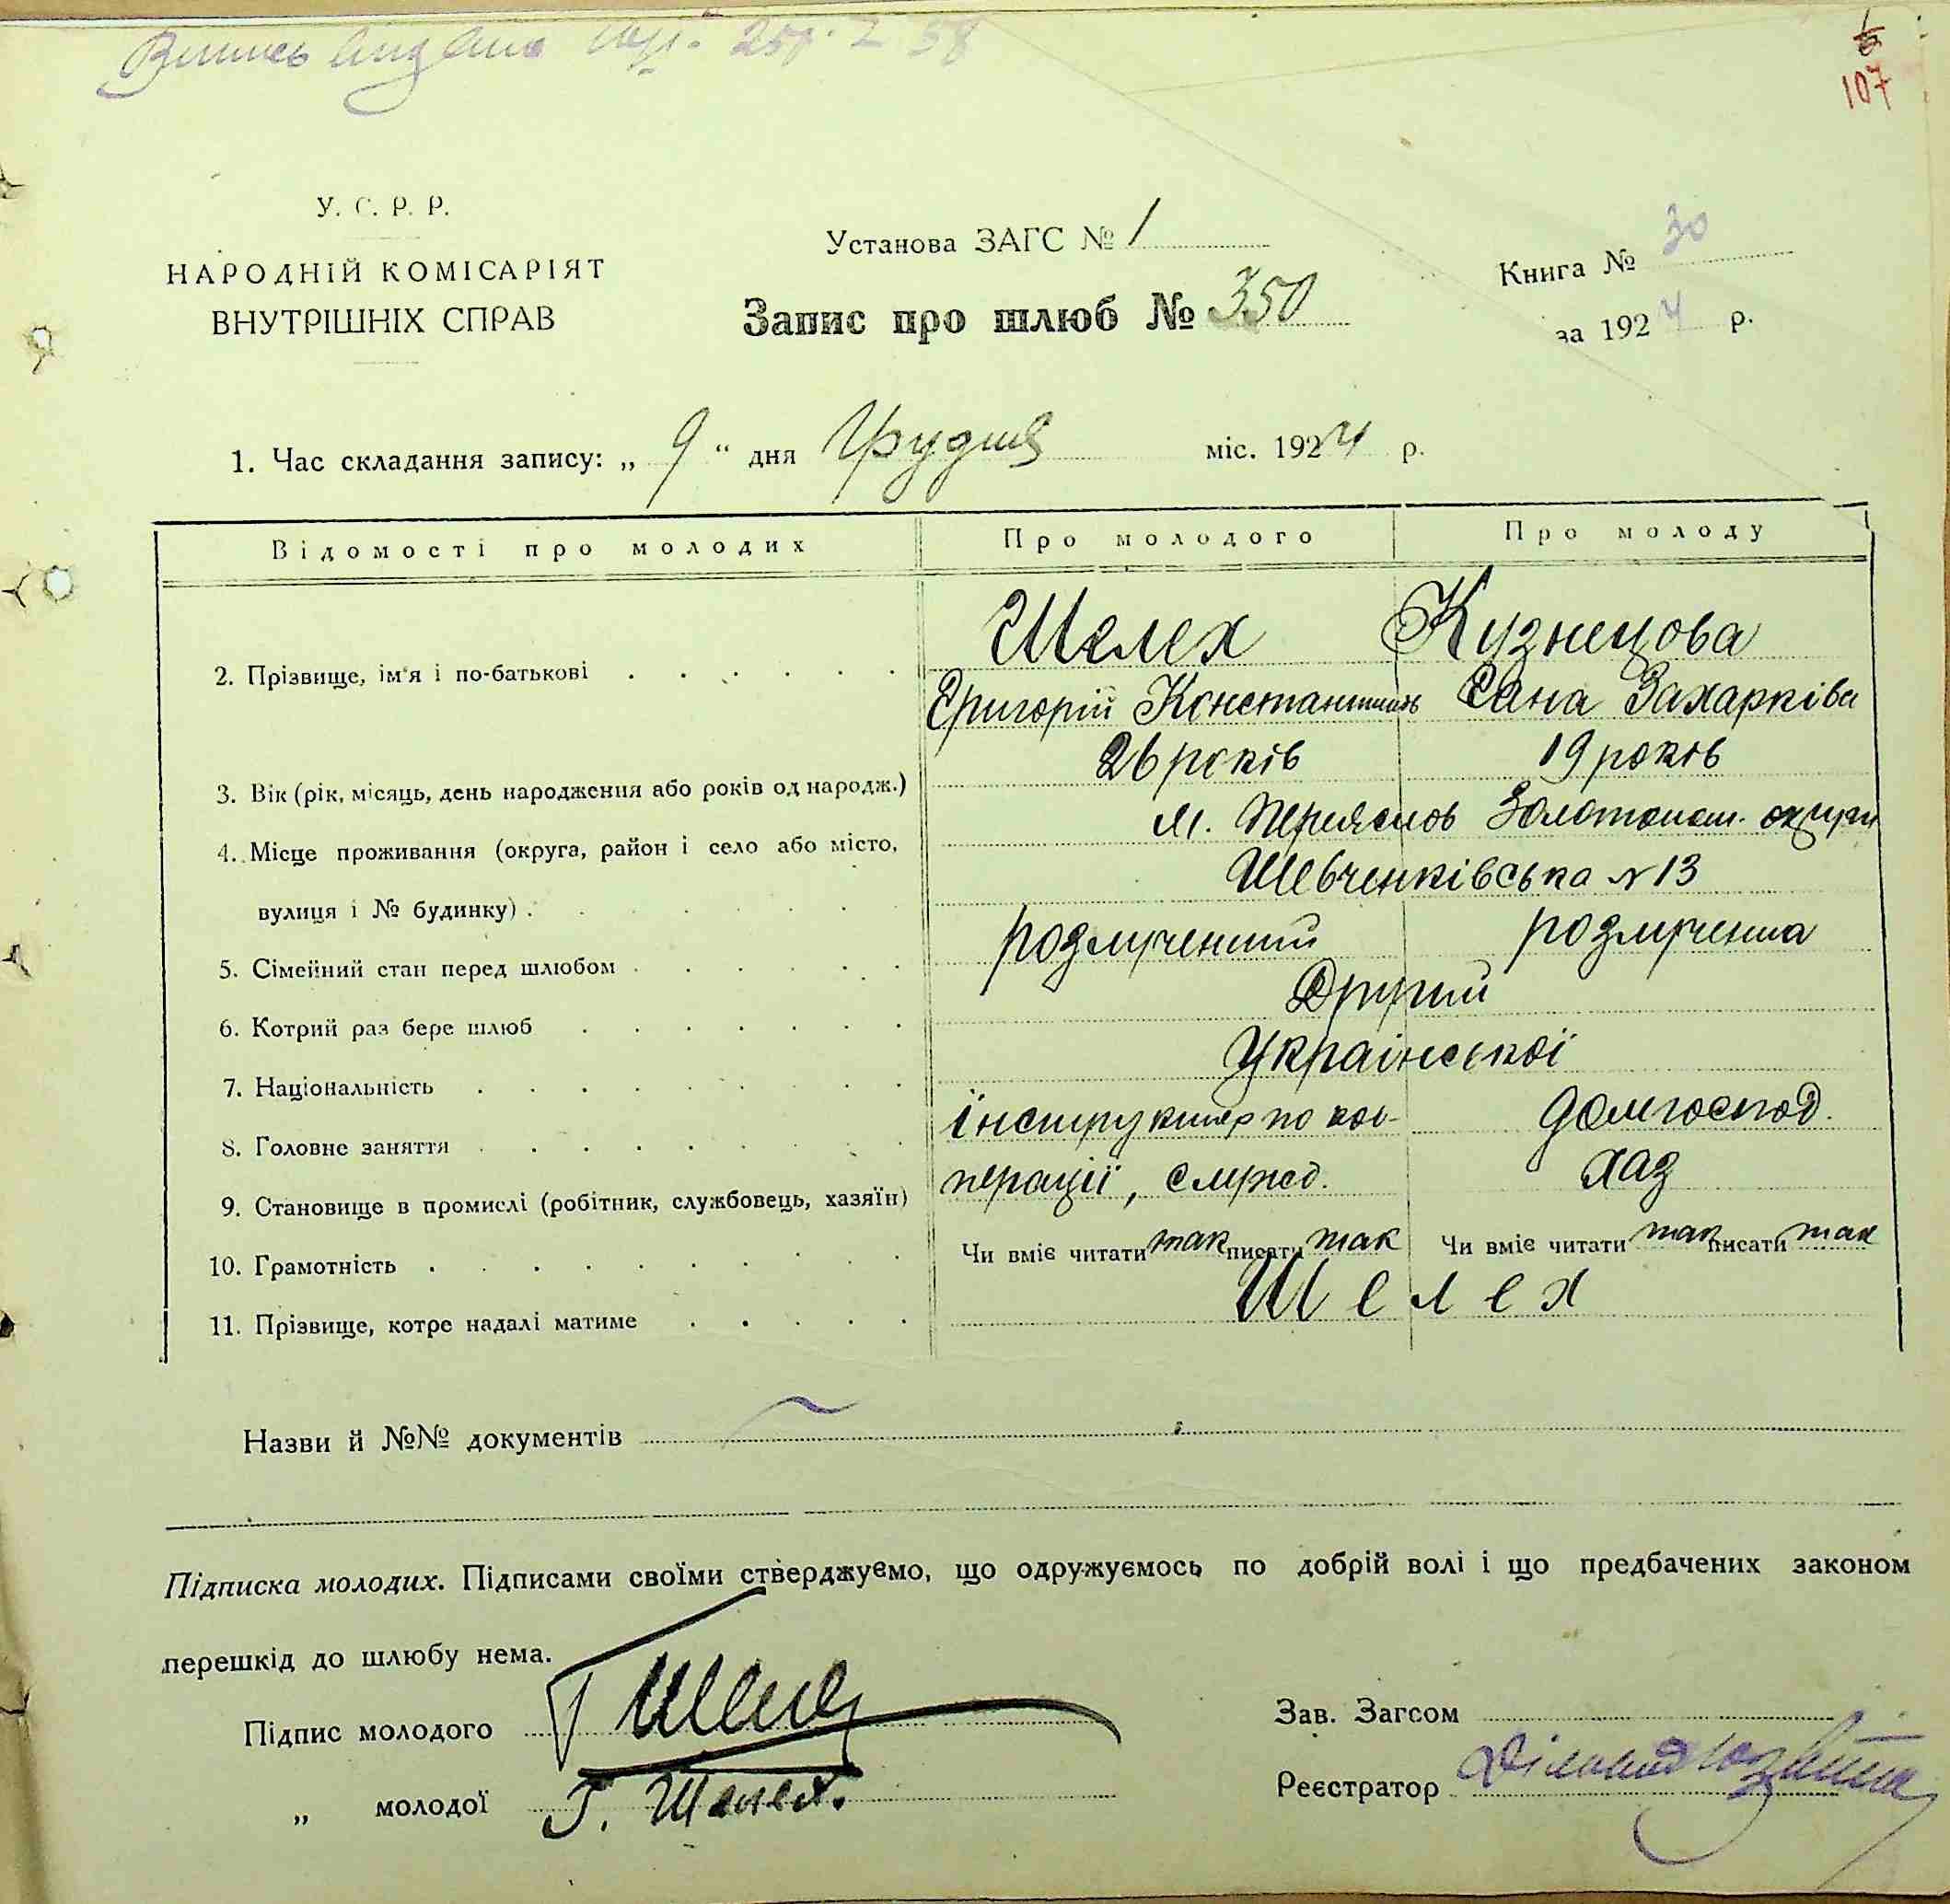 107
У. С. Р. Р.
НАРОДНІЙ КОМІСАРІЯТ
ВНУТРІШНІХ СПРАВ
Установа ЗАГС № 1
Запис про шлюб № 350
Книга № 30
за 1924 р.
1. Час складання запису: „ 9 “ дня Грудня міс. 1924 р.
Відомості про молодих Про молодого Про молоду
Шелех Кузнецова
2. Прізвище, ім'я і по-батькові Григорій Константинов Захарківа
3. Вік (рік, місяць, день народження або років од народж.) 26 років 19 років
4. Місце проживання (округа, район і село або місто, м. Переяслов Золотонош. округи
вулиця і № будинку) Шевченківська № 13
5. Сімейний стан перед шлюбом розлучений розлучена
6. Котрий раз бере шлюб Другий
7. Національність Української
8. Головне заняття інструктор по коо- домгоспод.
9. Становище в промислі (робітник, службовець, хазяїн) перації, служб. хаз
10. Грамотність Чи вміє читати так писати так Чи вміє читати так писати так
11. Прізвище, котре надалі матиме Шелех
Назви й №№ документів
Підписка молодих. Підписами своїми стверджуємо, що одружуємось по добрій волі і що предбачених законом
перешкід до шлюбу нема.
Підпис молодого
Зав. Загсом
„ молодої Г. Шелех.
Реєстратор